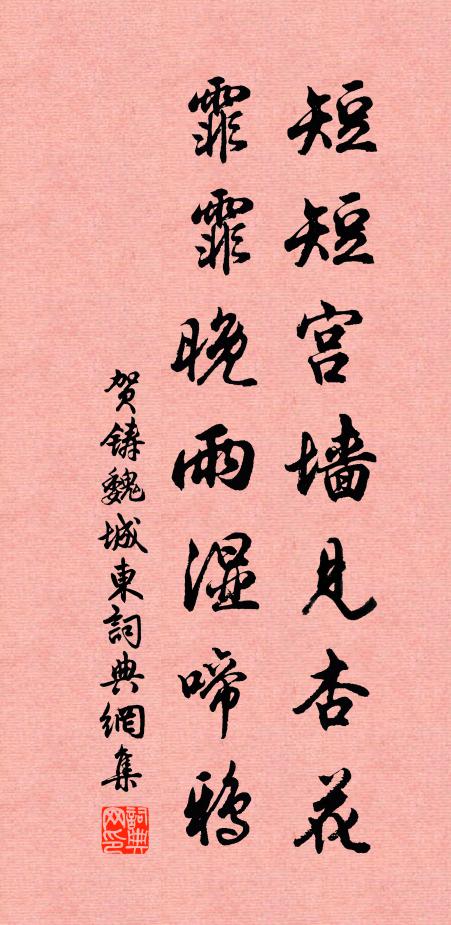 短短宫墙见杏花
霏霏晚雨湿啼鸦
贺铸魏城東詞典網集
詞典网印